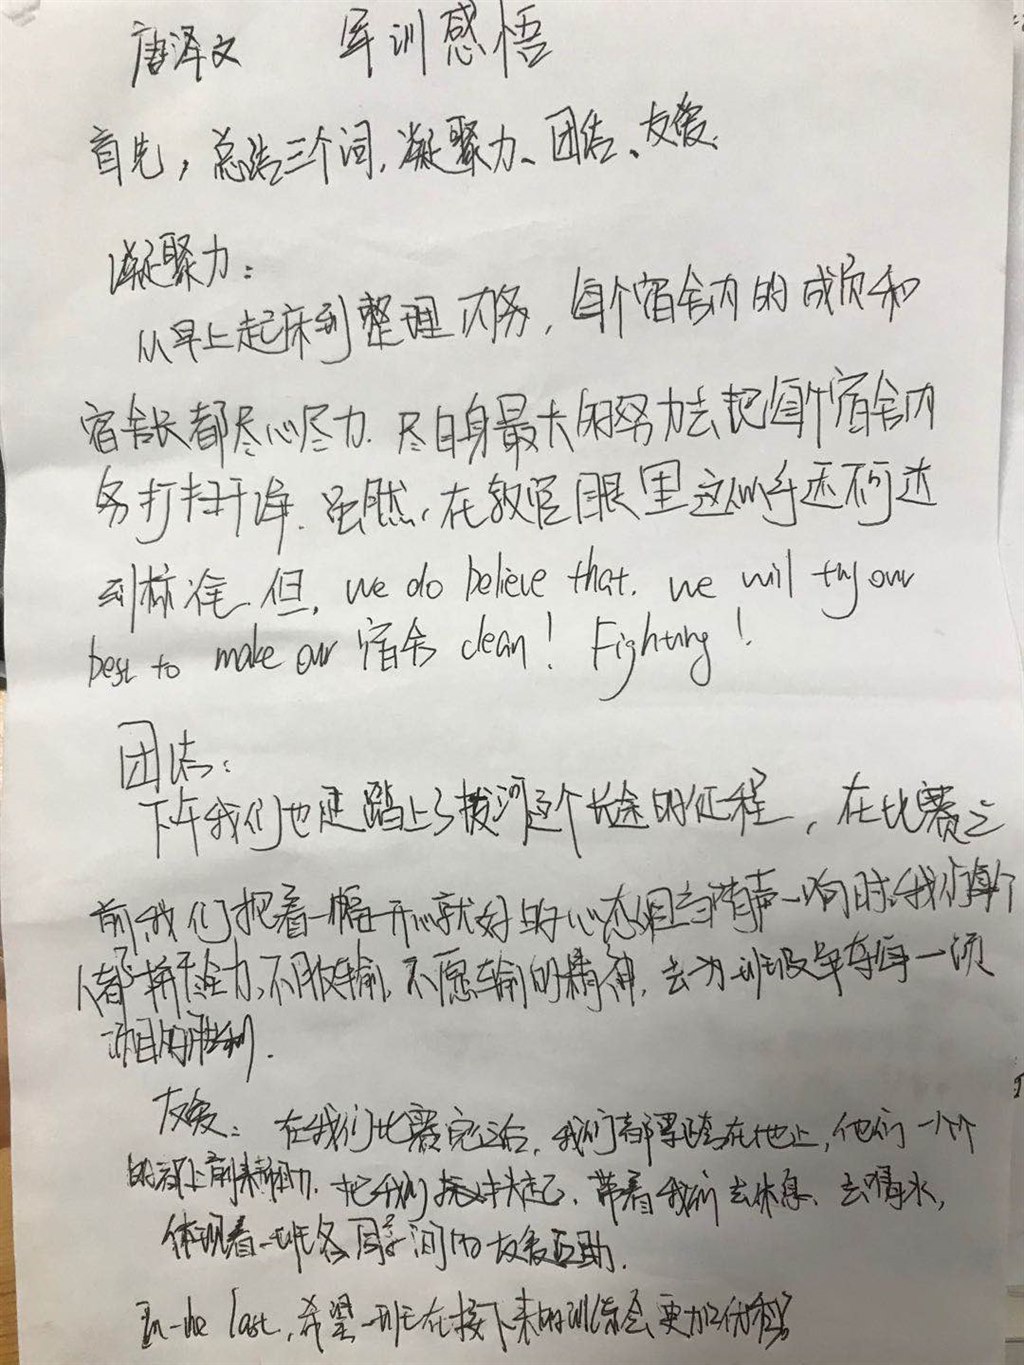 唐泽文 军训感悟
首先，总结三个词，凝聚力、团结、友爱.
凝聚力：
从早上起床到整理内务，每个宿舍内的成员和
宿舍长都尽心尽力.尽自身最大的努力去把每个宿舍内
务打扫干净.虽然，在教官眼里这似乎还不可达
到标准.但, we do believe that. we will try our
best to make our 宿舍 clean! Fighting!
团结：
下午我们也是踏上了拔河这个长途的征程，在比赛之
前我们把着一幅开心就好的心态但当哨声一响时,我们每个
人都拼尽全力,不服输,不愿输的精神,去为一班夺每一项
项目的胜利.
友爱：在我们比赛完之后,我们都在地上,他们一个个
的都上前来帮助.把我们扶起.带着我们去休息、去喝水,
体现着一班各同学间的友爱互助.
In the last,希望一班在接下来的训练会更加优秀!